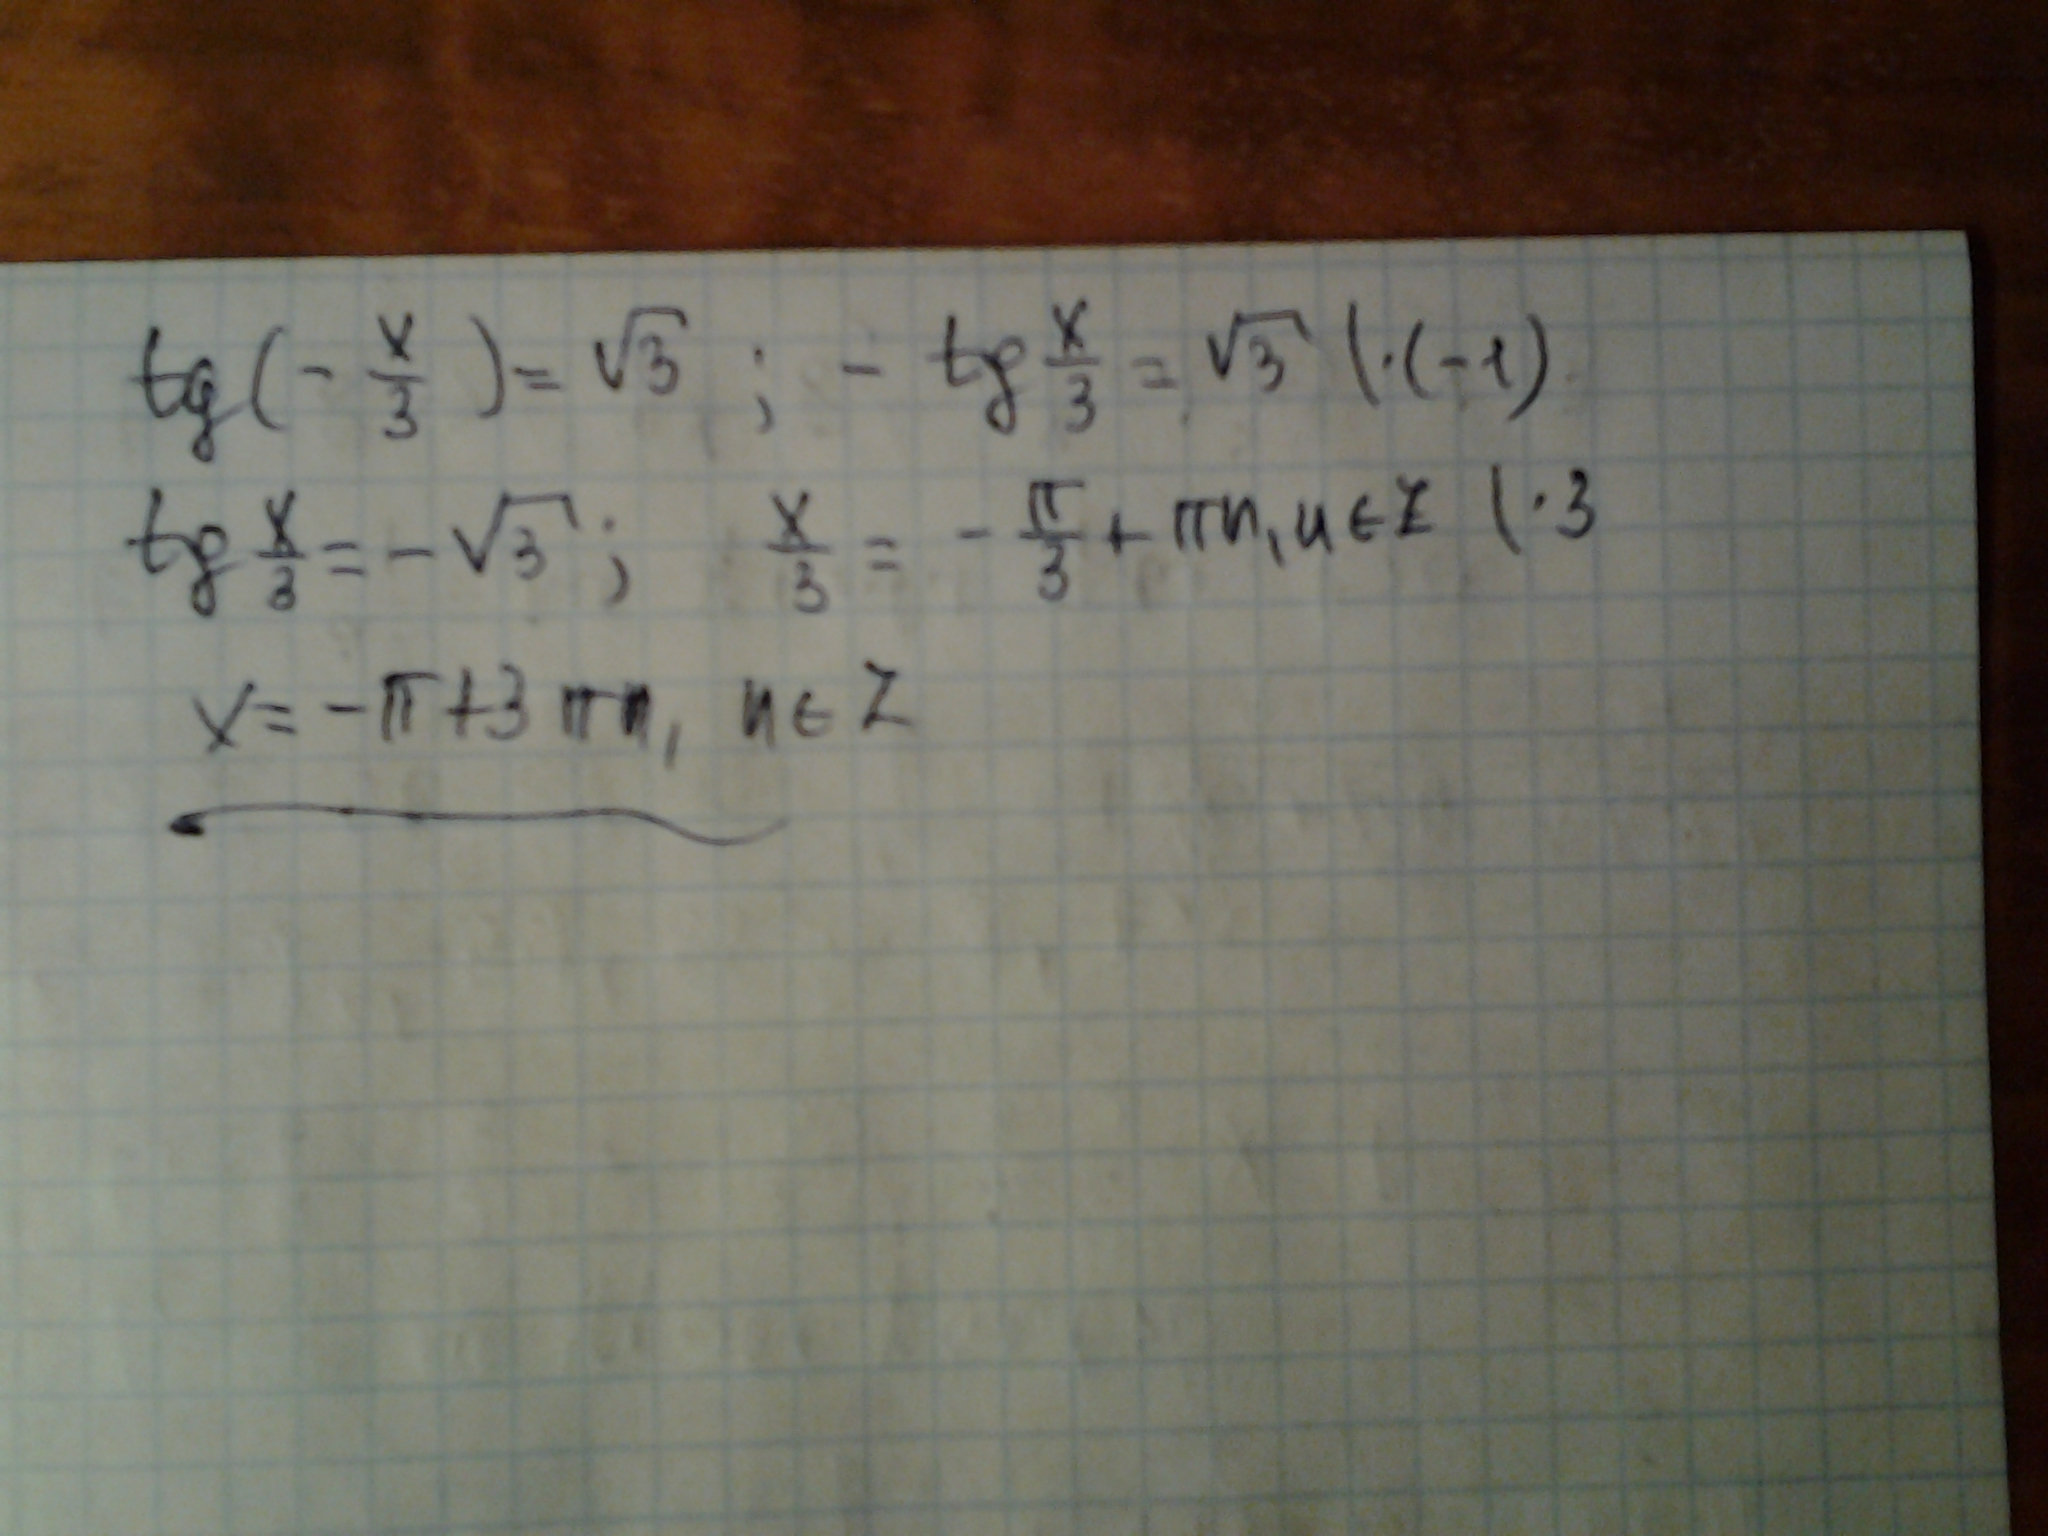 tg(-x/3)=√3; -tg x/3=√3 |·(-1)
tg x/3=-√3; x/3=-π/3+πn, n∈Z |·3
x=-π+3πn, n∈Z